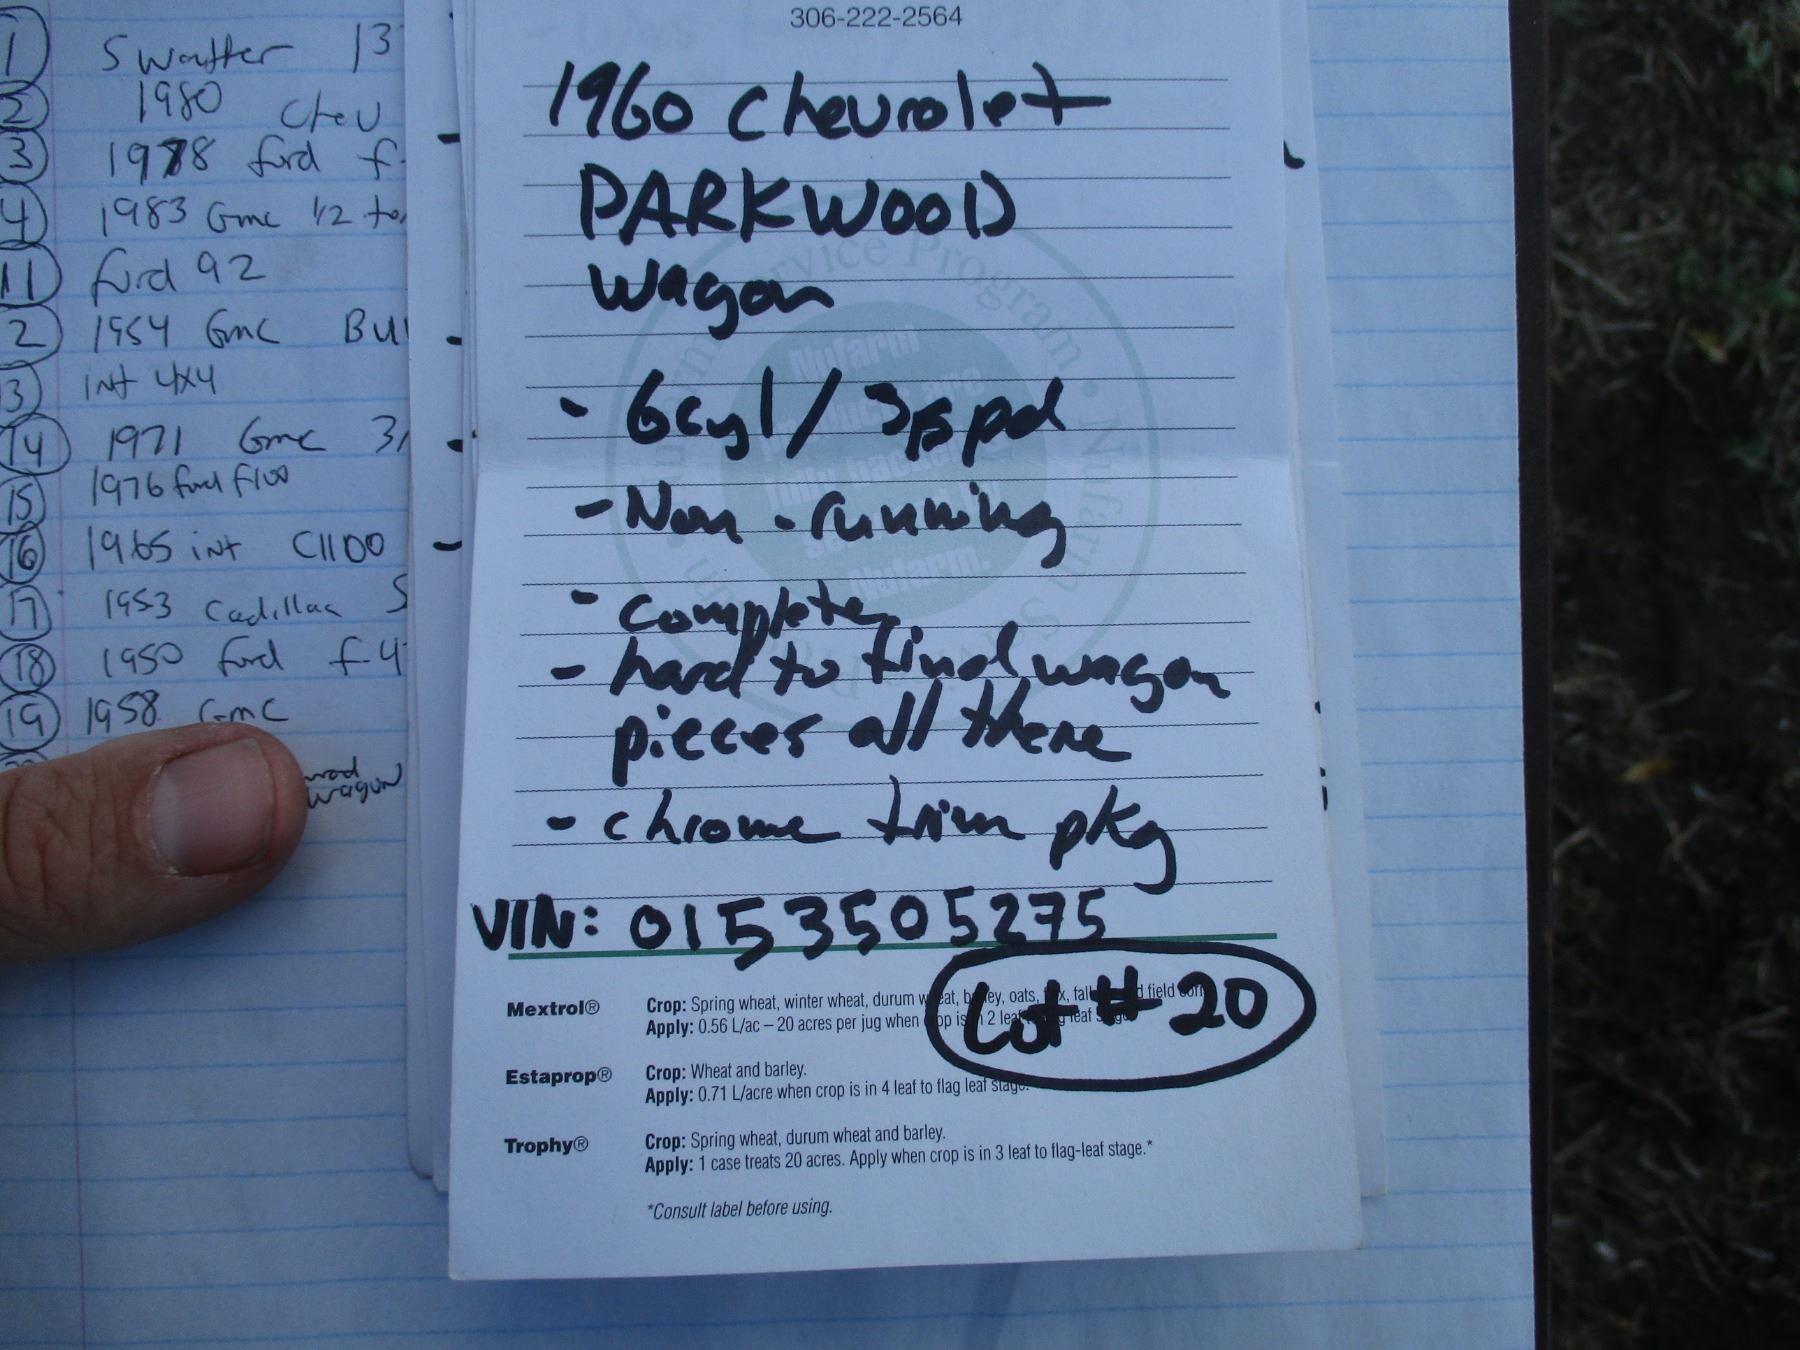 1 Swather 13
2 1980 Chev
3 1978 ford f-
4 1983 Gmc 1/2 to
11 ford 92
2 1954 Gmc BU
3 int 4x4
14 1971 Gmc 3/
15 1976 ford f100
16 1965 int C1100
17 1953 Cadillac S
18 1950 ford f-4
19 1958 Gmc
wagon
306-222-2564
1960 Chevrolet
PARKWOOD
wagon
- 6cyl / 3spd
- Non-running
- complete
- hard to find wagon
pieces all there
- chrome trim pkg
VIN: 0153505275
Lot # 20
Service Program • Nufarm
Nufarm
Nufarm.
Mextrol® Crop: Spring wheat, winter wheat, durum wheat, barley, oats, flax, fall field corn
Apply: 0.56 L/ac – 20 acres per jug when crop is in 2 leaf leaf stage
Estaprop® Crop: Wheat and barley.
Apply: 0.71 L/acre when crop is in 4 leaf to flag leaf stage.
Trophy® Crop: Spring wheat, durum wheat and barley.
Apply: 1 case treats 20 acres. Apply when crop is in 3 leaf to flag-leaf stage.*
*Consult label before using.